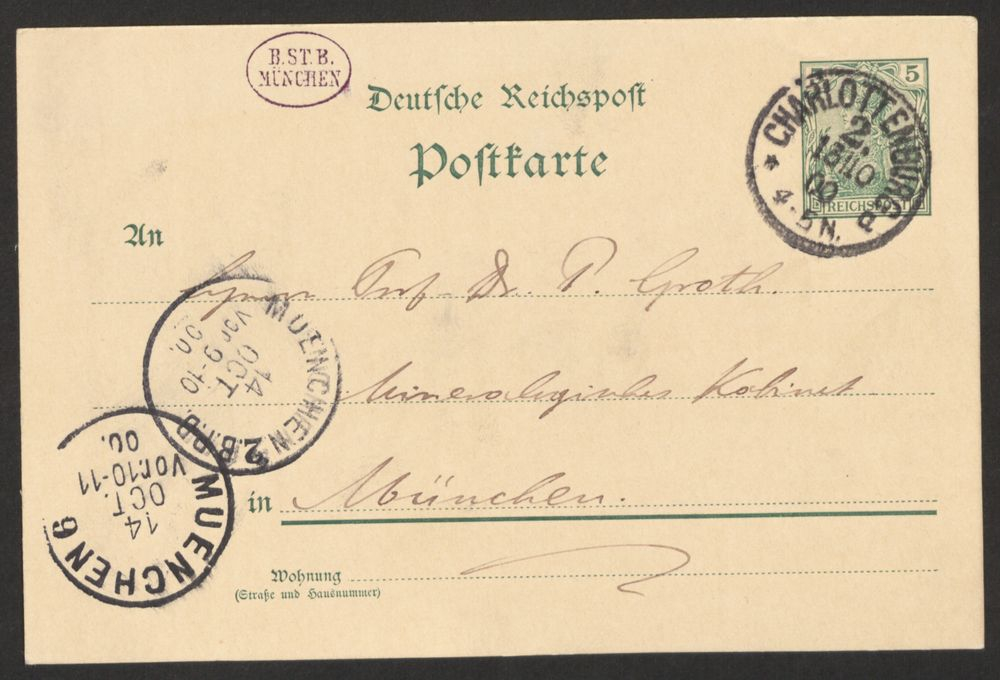 B.ST.B.
MÜNCHEN
Deutsche Reichspost
Postkarte
5 5
REICHSPOST
* CHARLOTTENBURG 2
2.
13/10
00
4-5N.
An
Herrn Prof Dr. P. Groth.
Mineralogisches Kabinet
in München.
Wohnung
(Straße und Hausnummer)
MUENCHEN 2.B.P.P.
14
OCT
Vor 9-10
00.
MUENCHEN 6
14
OCT.
Vor.10-11
00.